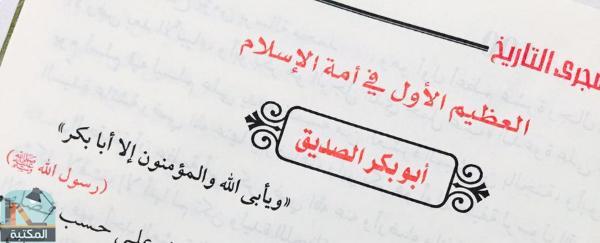 مجرى التاريخ
العظيم الأول في أمة الإسلام
أبو بكر الصديق
«ويأبى الله والمؤمنون إلا أبا بكر»
(رسول الله ﷺ)
على حسب
المكتبة